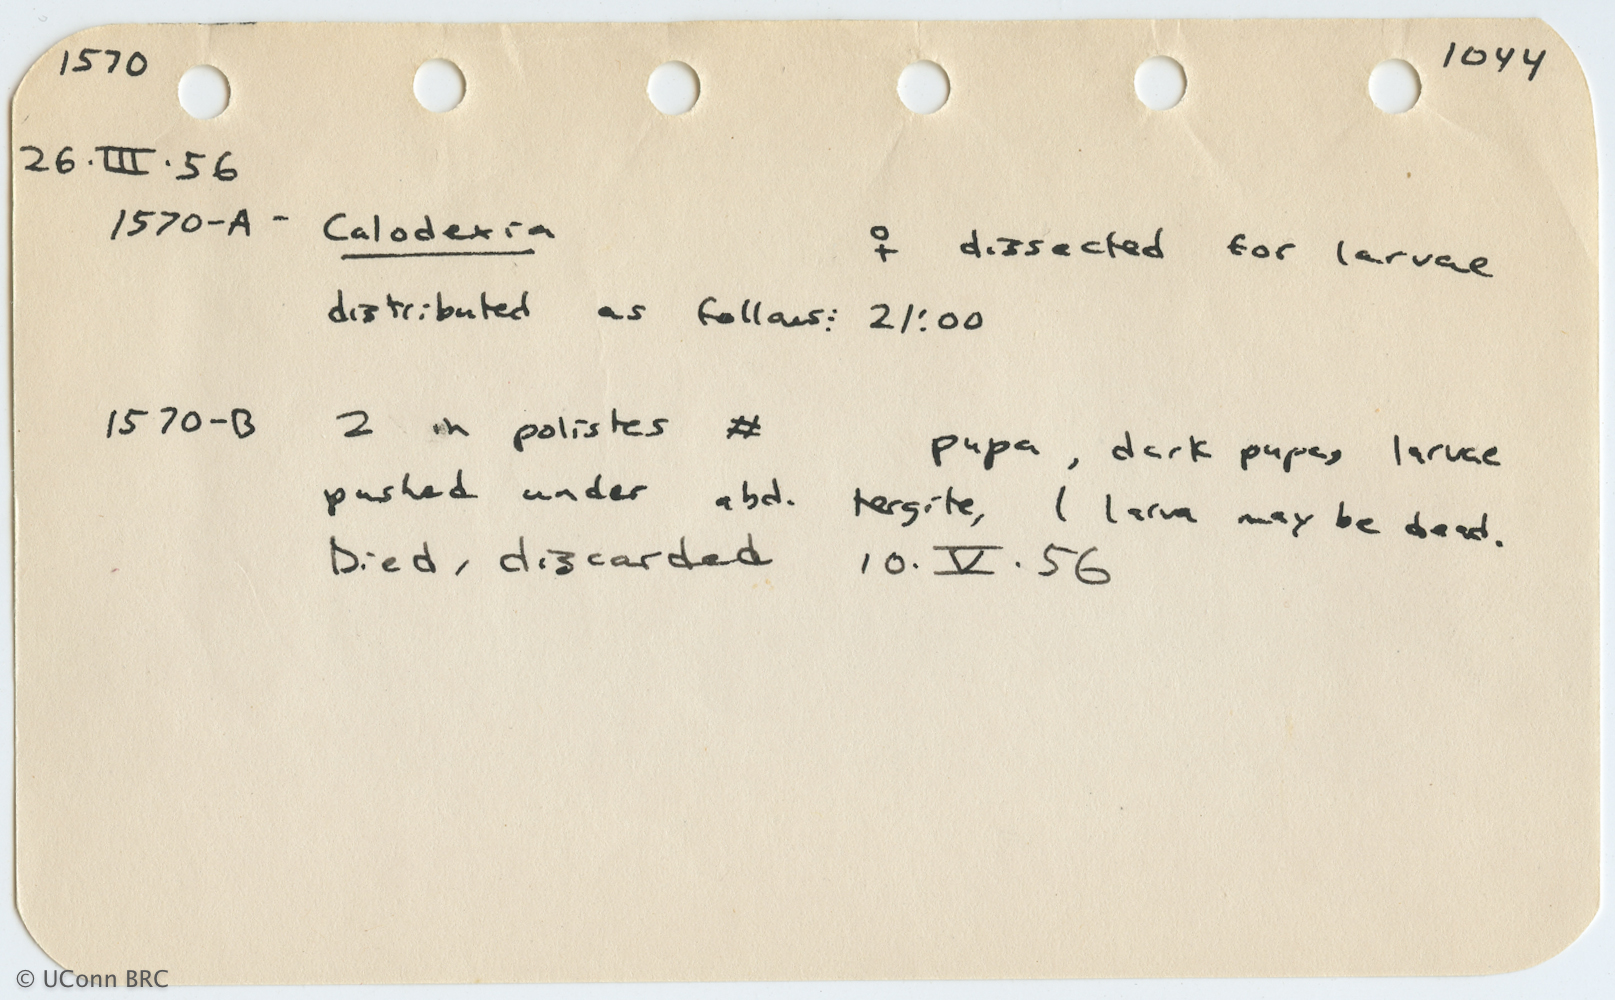 1570 1044
26.III.56
1570-A - Calodexia ♀ dissected for larvae
distributed as follows: 21:00
1570-B 2 in polistes # pupa, dark pupa, larvae
pushed under abd. tergite, 1 larva may be dead.
Died, discarded 10.V.56
© UConn BRC